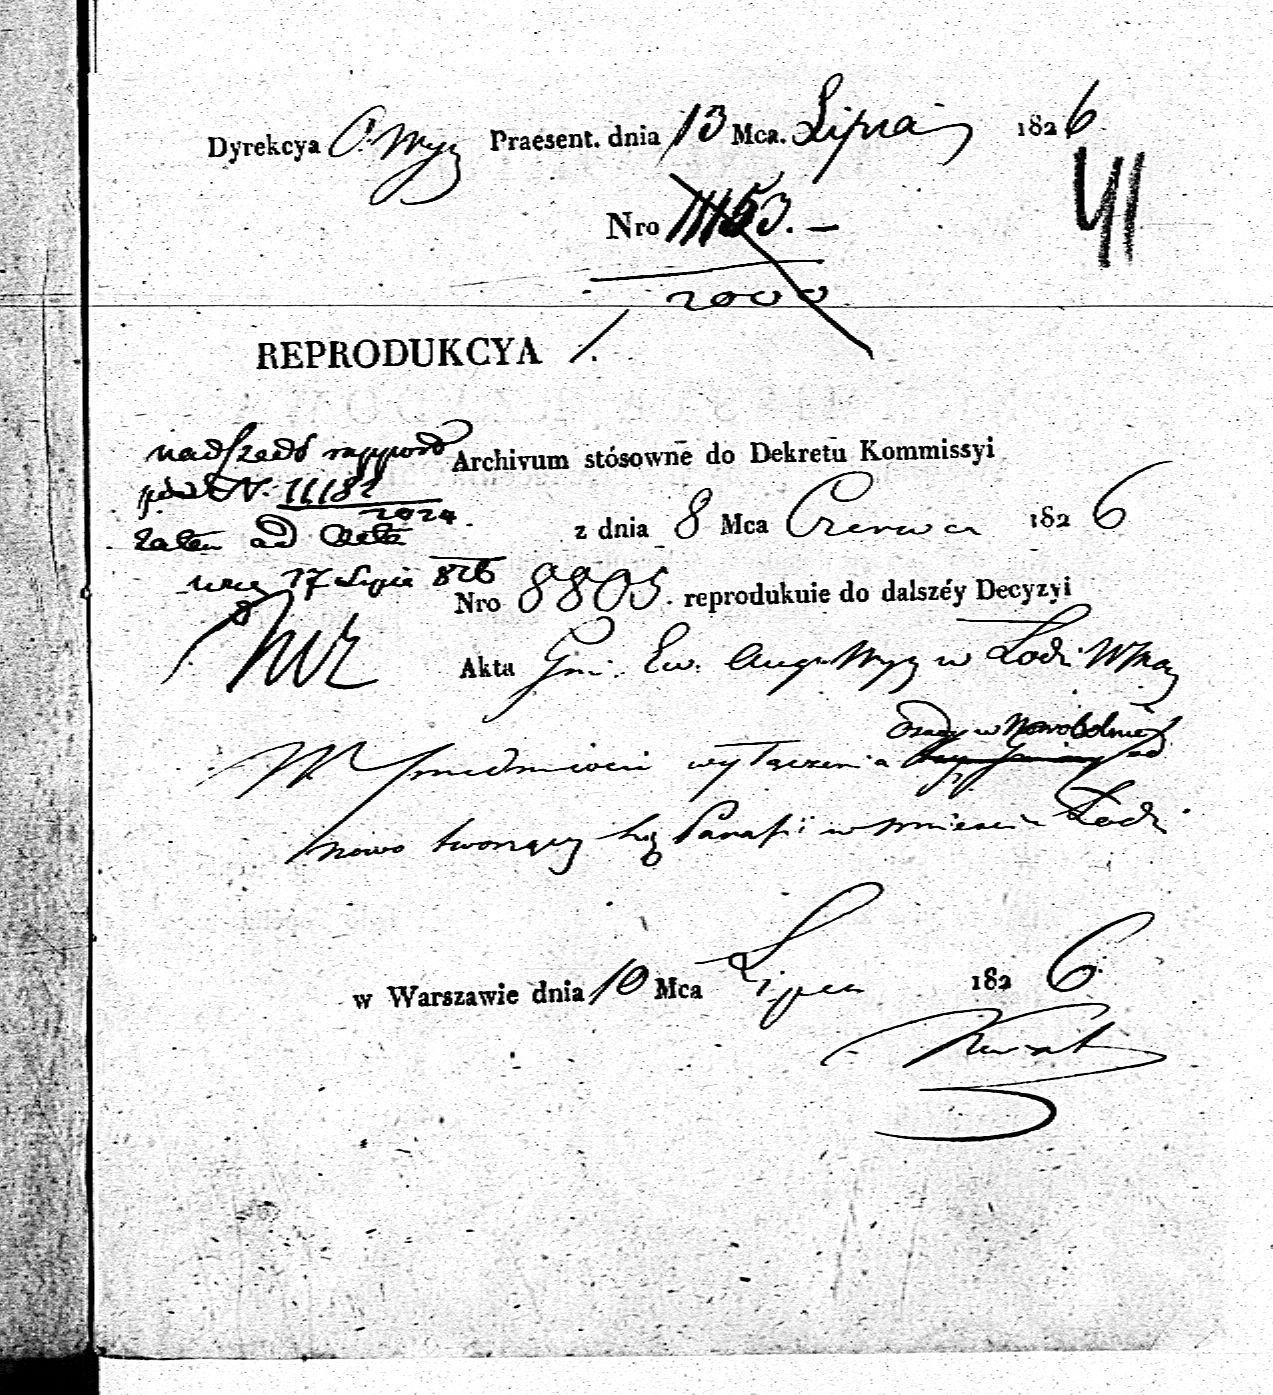 Dyrekcya O. Wyz Praesent. dnia 13 Mca. Lipca 1826
41
Nro 11153. –
2000
REPRODUKCYA /.
nadszedł rapport
pod N. 11182
2024
zatem ad Acta
17 Lipca 826
Archivum stósownē do Dekretū Kommissyi
z dnia 8 Mca Czerwca 1826
Nro 8805. reprodukuie do dalszéy Decyzyi
Akta Gmi. Ew. Augs. Wyz w Łodzi
W przedmiocie wyłączenia osady w Nowosolnej od
nowo tworzący się Parafii w mieście Łodzi
w Warszawie dnia 10 Mca Lipca 1826